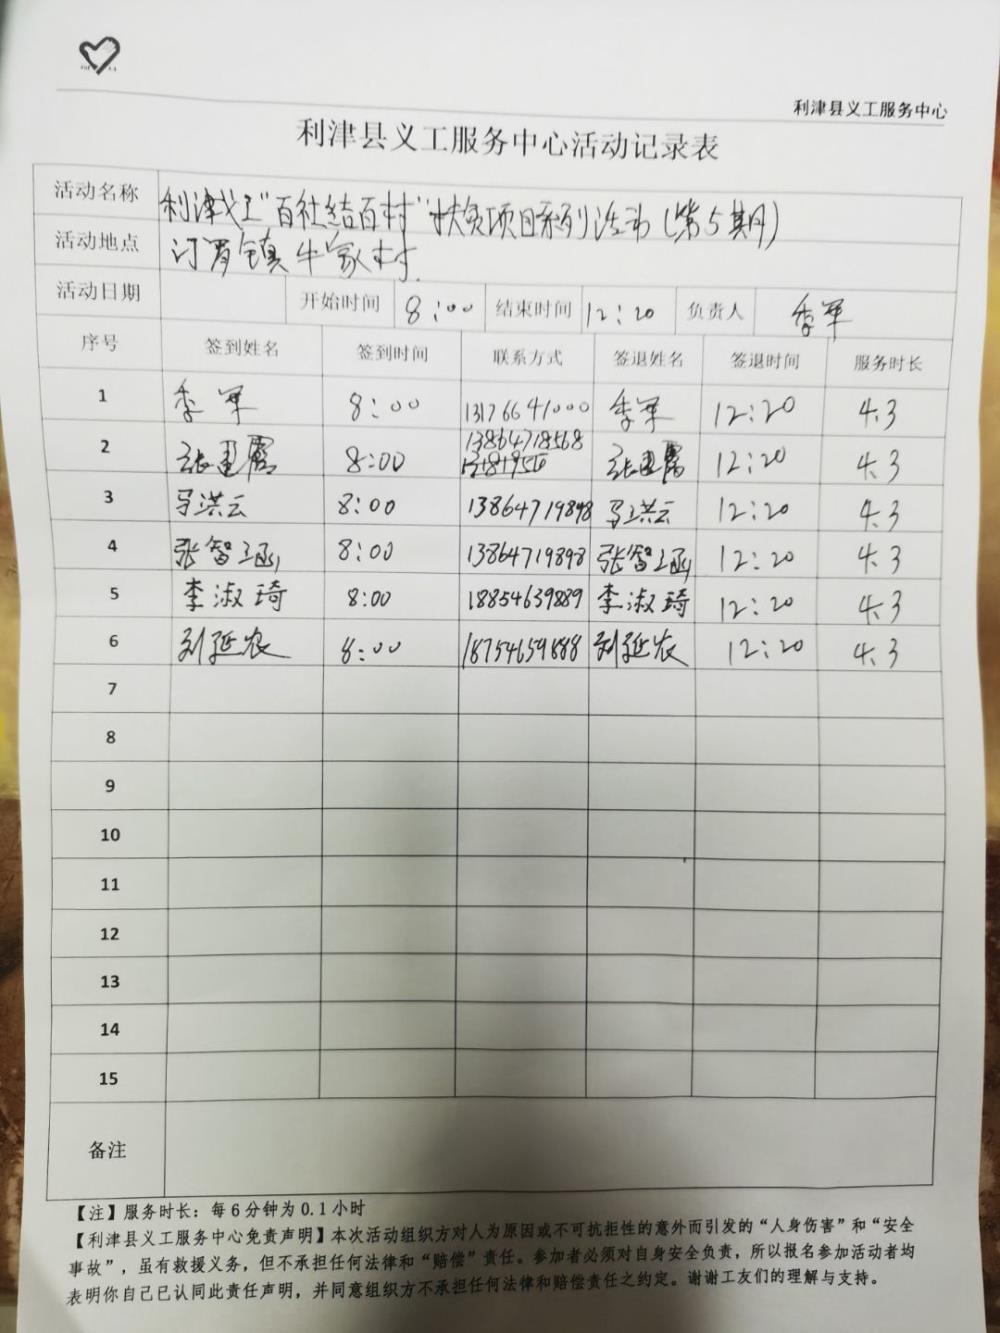 利津县义工服务中心
利津县义工服务中心活动记录表
活动名称 利津义工“百社结百村”扶贫项目系列活动(第5期)
活动地点 汀罗镇牛家村
活动日期 开始时间 8:00 结束时间 12:20 负责人 李军
序号 签到姓名 签到时间 联系方式 签退姓名 签退时间 服务时长
1 李军 8:00 13176641000 李军 12:20 4.3
2 张建霞 8:00 13864718568 张建霞 12:20 4.3
3 马洪云 8:00 13864719898 马洪云 12:20 4.3
4 张智涵 8:00 13864719898 张智涵 12:20 4.3
5 李淑琦 8:00 18854639889 李淑琦 12:20 4.3
6 刘延农 8:00 18754659888 刘延农 12:20 4.3
7
8
9
10
11
12
13
14
15
备注
【注】服务时长:每6分钟为0.1小时
【利津县义工服务中心免责声明】本次活动组织方对人为原因或不可抗拒性的意外而引发的“人身伤害”和“安全
事故”,虽有救援义务,但不承担任何法律和“赔偿”责任。参加者必须对自身安全负责,所以报名参加活动者均
表明你自己已认同此责任声明,并同意组织方不承担任何法律和赔偿责任之约定。谢谢工友们的理解与支持。